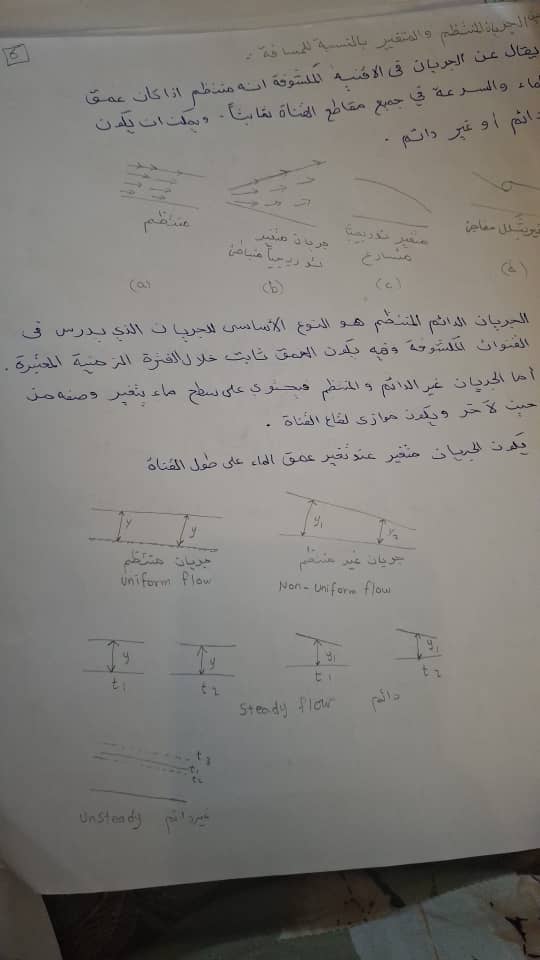 الجريان المنتظم والمتغير بالنسبة للمسافة .
5
يقال عن الجريان في الاقنية المكشوفة انه منتظم اذا كان عمق
الماء والسرعة في جميع مقاطع القناة ثابتاً . ويمكن ان يكون
دائم أو غير دائم .
منتظم
جريان متغير
تدريجياً متباطئ
متغير تدريجياً
متسارع
مفاجئ
(a)
(b)
(c)
(d)
الجريان الدائم المنتظم هو النوع الأساسي للجريان الذي يدرس في
القنوات المكشوفة وفيه يكون العمق ثابت خلال الفترة الزمنية المعتبرة .
أما الجريان غير الدائم والمنتظم فيحتوي على سطح ماء يتغير وضعه من
حين لآخر ويكون موازي لقاع القناة .
يكون الجريان متغير عند تغير عمق الماء على طول القناة
y
y
y₁
y₂
جريان منتظم
uniform flow
جريان غير منتظم
Non-uniform flow
y
y
y₁
y₁
t₁
t₂
t₁
t₂
steady flow دائم
t₃
t₁
t₂
unsteady غير دائم